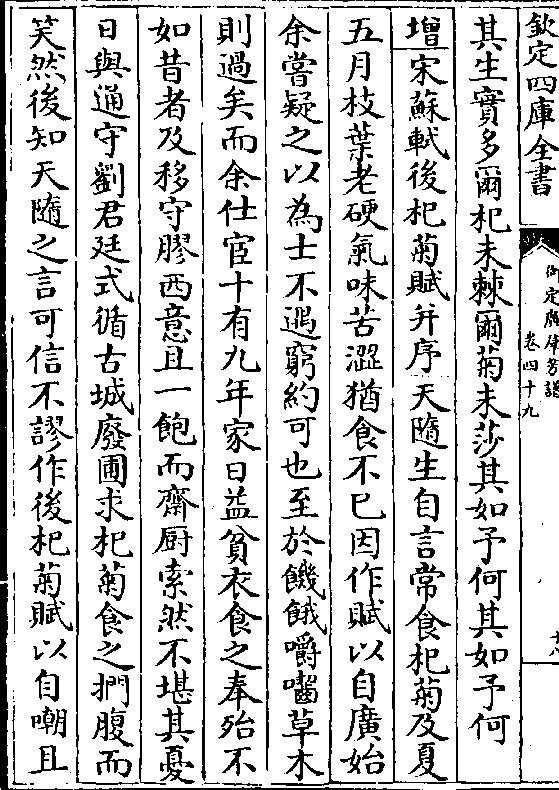 欽定四庫全書
御定佩文齋廣羣芳譜
卷四十九
其生實多爾杞未棘爾菊未莎其如予何其如予何
增宋蘇軾後杞菊賦并序天隨生自言常食杞菊及夏
五月枝葉老硬氣味苦澀猶食不已因作賦以自廣始
余嘗疑之以為士不遇窮約可也至於饑餓嚼嚙草木
則過矣而余仕宦十有九年家日益貧衣食之奉殆不
如昔者及移守膠西意且一飽而齋厨索然不堪其憂
日與通守劉君廷式循古城廢圃求杞菊食之捫腹而
笑然後知天隨之言可信不謬作後杞菊賦以自嘲且